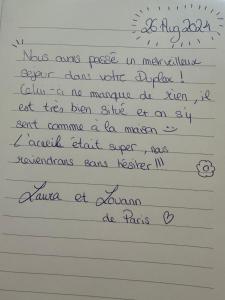 26 Aug 2024
Nous avons passé un merveilleux
séjour dans votre Duplex !
Celui-ci ne manque de rien, il
est très bien situé et on s'y
sent comme à la maison
L'accueil était super, nous
reviendrons sans hésiter !!!
Laura et Lovann
de Paris